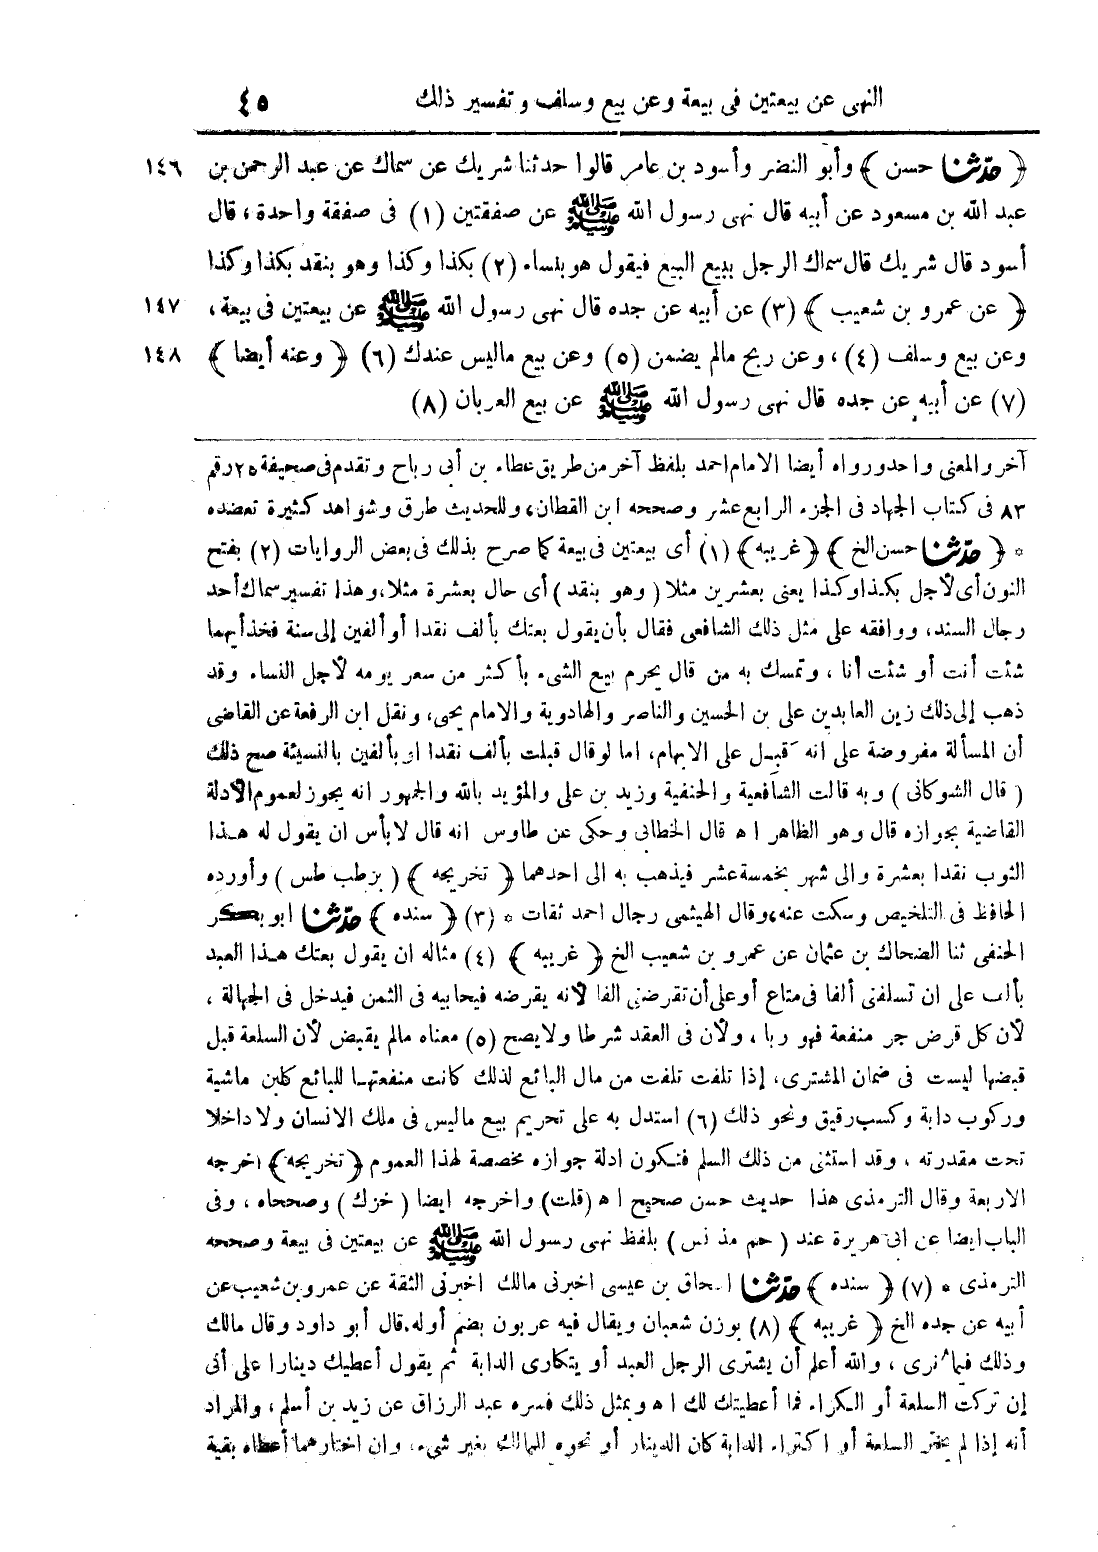 النهى عن بيعتين فى بيعة وعن بيع وسلف وتفسير ذلك ٤٥
﴿ حدّثنا حسن ﴾ وأبو النضر وأسود بن عامر قالوا حدثنا شريك عن سماك عن عبد الرحمن بن ١٤٦
عبد الله بن مسعود عن أبيه قال نهى رسول الله ﷺ عن صفقتين (١) فى صفقة واحدة ، قال
أسود قال شريك قال سماك الرجل يبيع البيع فيقول هو بنساء (٢) بكذا وكذا وهو بنقد بكذا وكذا
﴿ عن عمرو بن شعيب ﴾ (٣) عن أبيه عن جده قال نهى رسول الله ﷺ عن بيعتين فى بيعة ، ١٤٧
وعن بيع وسلف (٤) ، وعن ربح مالم يضمن (٥) وعن بيع ماليس عندك (٦) ﴿ وعنه أيضا ﴾ ١٤٨
(٧) عن أبيه عن جده قال نهى رسول الله ﷺ عن بيع العربان (٨)
آخر والمعنى واحد ورواه أيضا الامام احمد بلفظ آخر من طريق عطاء بن أبى رباح وتقدم فى صحيفة ٢٥ رقم
٨٣ فى كتاب الجهاد فى الجزء الرابع عشر وصححه ابن القطان، وللحديث طرق وشواهد كثيرة تعضده
* ﴿ حدّثنا حسن الخ ﴾ ﴿ غريبه ﴾ (١) أى بيعتين فى بيعة كما صرح بذلك فى بعض الروايات (٢) بفتح
النون أى لأجل بكذا وكذا يعنى بعشرين مثلا ( وهو بنقد ) أى حال بعشرة مثلا، وهذا تفسير سماك أحد
رجال السند، ووافقه على مثل ذلك الشافعى فقال بأن يقول بعتك بألف نقدا أو ألفين إلى سنة فخذ أيهما
شئت أنت أو شئت أنا ، وتمسك به من قال يحرم بيع الشىء بأكثر من سعر يومه لأجل النساء وقد
ذهب إلى ذلك زين العابدين على بن الحسين والناصر والهادوية والامام يحى، ونقل ابن الرفعة عن القاضى
أن المسألة مفروضة على انه قبل على الابهام، اما لو قال قبلت بألف نقدا او بألفين بالنسيئة صح ذلك
( قال الشوكانى ) وبه قالت الشافعية والحنفية وزيد بن على والمؤيد بالله والجمهور انه يجوز لعموم الأدلة
القاضية بجوازه قال وهو الظاهر ا ه قال الخطابى وحكى عن طاوس انه قال لابأس ان يقول له هذا
الثوب نقدا بعشرة والى شهر بخمسة عشر فيذهب به الى احدهما ﴿ تخريجه ﴾ ( بز طب طس ) وأورده
الحافظ فى التلخيص وسكت عنه، وقال الهيثمى رجال احمد ثقات * (٣) ﴿ سنده ﴾ حدّثنا ابو بكر
الحنفى ثنا الضحاك بن عثمان عن عمرو بن شعيب الخ ﴿ غريبه ﴾ (٤) مثاله ان يقول بعتك هذا العبد
بألف على ان تسلفنى ألفا فى متاع أو على أن تقرضنى الفا لأنه يقرضه فيحابيه فى الثمن فيدخل فى الجهالة ،
لأن كل قرض جر منفعة فهو ربا ، ولأن فى العقد شرطا ولا يصح (٥) معناه مالم يقبض لأن السلعة قبل
قبضها ليست فى ضمان المشترى، إذا تلفت تلفت من مال البائع لذلك كانت منفعتها للبائع كلبن ماشية
وركوب دابة وكسب رقيق ونحو ذلك (٦) استدل به على تحريم بيع ماليس فى ملك الانسان ولا داخلا
تحت مقدرته ، وقد استثنى من ذلك السلم فتكون ادلة جوازه مخصصة لهذا العموم ﴿ تخريجه ﴾ اخرجه
الاربعة وقال الترمذى هذا حديث حسن صحيح ا ه (قلت) واخرجه ايضا ( خزك ) وصححاه ، وفى
الباب ايضا عن ابى هريرة عند ( حم مذ نس ) بلفظ نهى رسول الله ﷺ عن بيعتين فى بيعة وصححه
الترمذى * (٧) ﴿ سنده ﴾ حدّثنا اسحاق بن عيسى اخبرنى مالك اخبرنى الثقة عن عمرو بن شعيب عن
أبيه عن جده الخ ﴿ غريبه ﴾ (٨) بوزن شعبان ويقال فيه عربون بضم أوله، قال أبو داود وقال مالك
وذلك فيما نرى ، والله أعلم أن يشترى الرجل العبد أو يتكارى الدابة ثم يقول أعطيك دينارا على أنى
إن تركت السلعة أو الكراء فما أعطيتك لك ا ه وبمثل ذلك فسره عبد الرزاق عن زيد بن أسلم، والمراد
أنه إذا لم يختر السلعة أو اكتراء الدابة كان الدينار أو نحوه للمالك بغير شىء، وان اختارهما أعطاه بقية